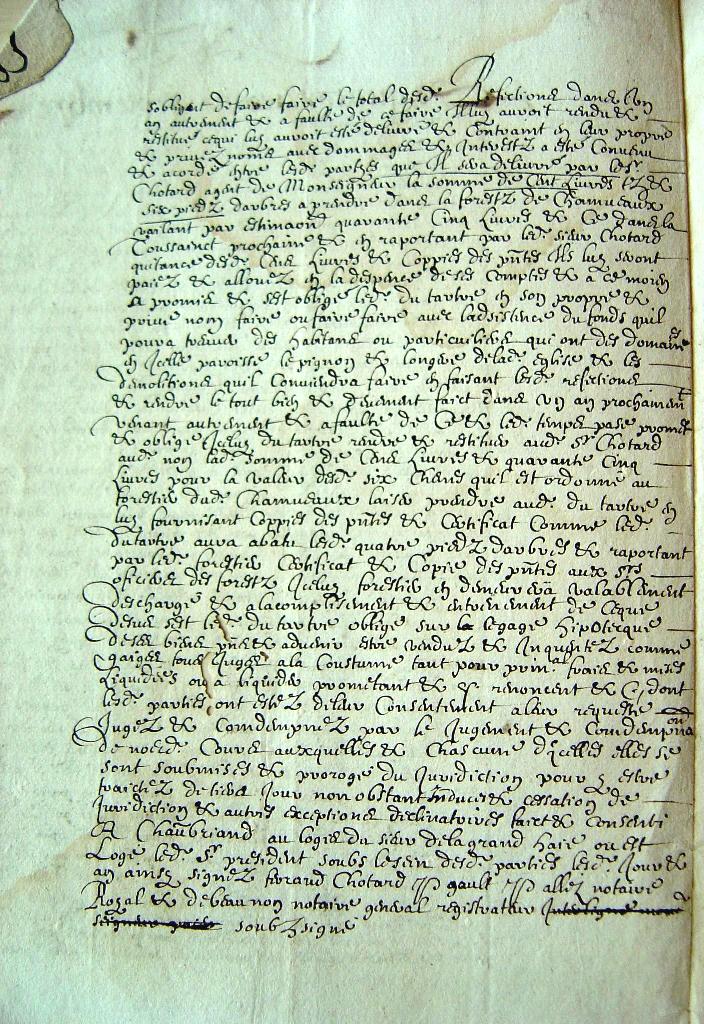 sobligent de faire faire le total desd. Refections dans Un
an autrement & a faulte de ce faire Illuy auroit rendu &
restitue cequi luy auroit esté delivré & Contraint en leur propre
& privez noms avec dommages & Interestz a esté Convenu
& acordé entre lesd. partyes que Il sera delivré par led. Sr
Chotard agent de Monseigneur la somme de Cent Livres tz &
Six piedz darbres a prendre dans la forestz de Chamveaux
vallant par estimaon quarante Cinq Livres & Ce dans la
Toussainct prochaine & en raportant par led. sieur Chotard
quitance desd. Cent Livres & Coppies des pntes Ils luy seront
paiez & allouez en la despence de ses Comptes & a ce moien
a promis & sest obligé led. du tartre en son propre &
privé nom faire ou faire faire avec ladsistence du fonds quil
poura trouver des habitans ou particuliers qui ont des domaines
en Icelle paroisse le pignon & longere de lad. eglise & les
demolitions quil Conviendra faire en faisant lesd. refections
& rendre le tout bien & devement faict dans Un an prochainemt
venant autrement & a faulte de Ce & led. temps passé promet
& oblige Iceluy du tartre rendre & restituer aud. Sr Chotard
aud. nom lad. somme de Cent Livres & quarante Cinq
Livres pour la valeur desd. six Chenes quil est ordonné au
forestier dud. Chamveaux laiser prendre aud. du tartre en
luy fournisant Coppies des pntes & Certificat Comme led.
du tartre aura abatu lesd. quatre piedz darbres & raportant
par led. forestier Certificat & Copie des pntes aux Srs
oficiers des forestz Iceluy forestier en demeurera valablement
deschargé & alacomplisement & entretenement de Ceque
desus sest led. du tartre obligé sur le gage Hipotecque
de ses biens pnts & advenir estre vendus & Inquentez comme
gaiges tous Jugez a la Coustume tant pour prinal fraiz & mises
Liquidees ou a liquider prometant & renoncent & dont
lesd. parties ont estez de leur Consentement a leur requeste
Jugez & Comdempnez par le Jugement & Comdempnaon
de nosd. Cours auxquelles & Chascune dicelles elles se
sont soubmises & prorogé du Juridiction pour y estre
traictez de tous Jour non obstant Induces & cessation de
Juridiction & autres exceptions declinatoires faict & Consenti
A Chaubriand au logis du sieur de la grand haie ou est
Logé led. Sr president soubs le sein desd. parties lesd. Jour &
an ainsy signez Chotard gault allez notaire
Royal & debeaumon notaire general registrateur
soubzsigné